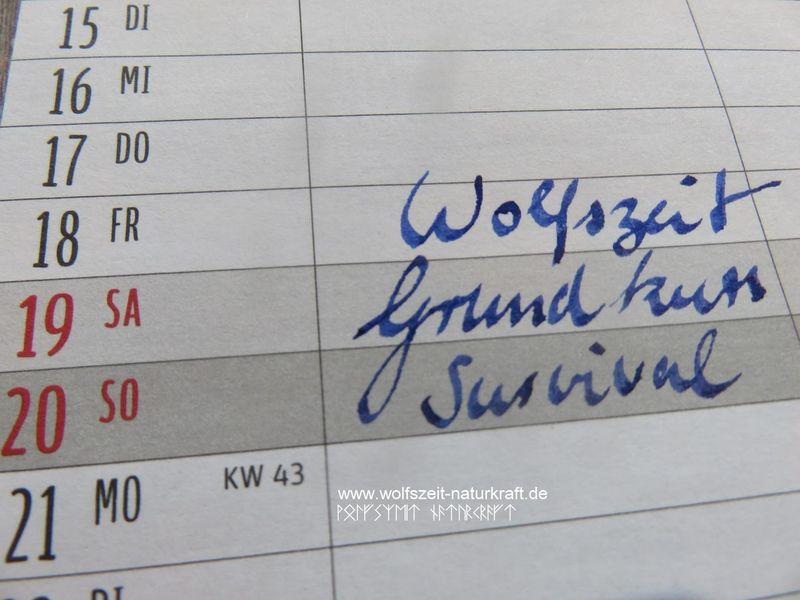 15 DI
16 MI
17 DO
18 FR Wolfszeit
19 SA Grundkurs
20 SO Survival
21 MO KW 43
www.wolfszeit-naturkraft.de
DI